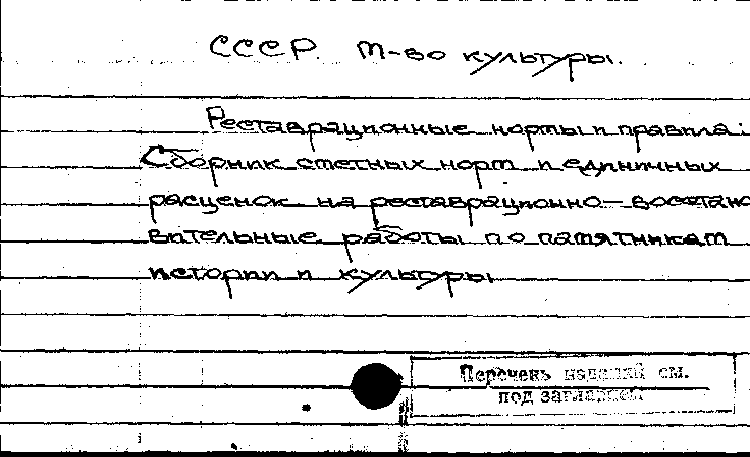 СССР. М-во культуры.
Реставрационные нормы и правила:
Сборник сметных норм и единичных
расценок на реставрационно-восстано
вительные работы по памятникам
истории и культуры
Перечень изданий см.
под заглавием